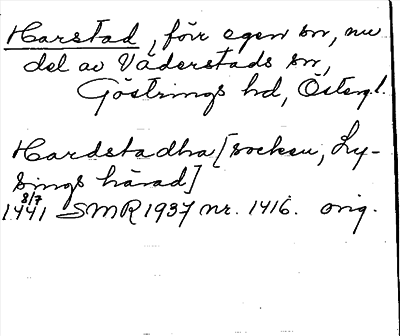 Harstad, förr egen sn, nu
del av Väderstads sn,
Göstrings hd, Östergl.
Hardstadha [socken, Ly-
sings härad]
8/7
1441 SMR 1937 nr. 1416. orig.